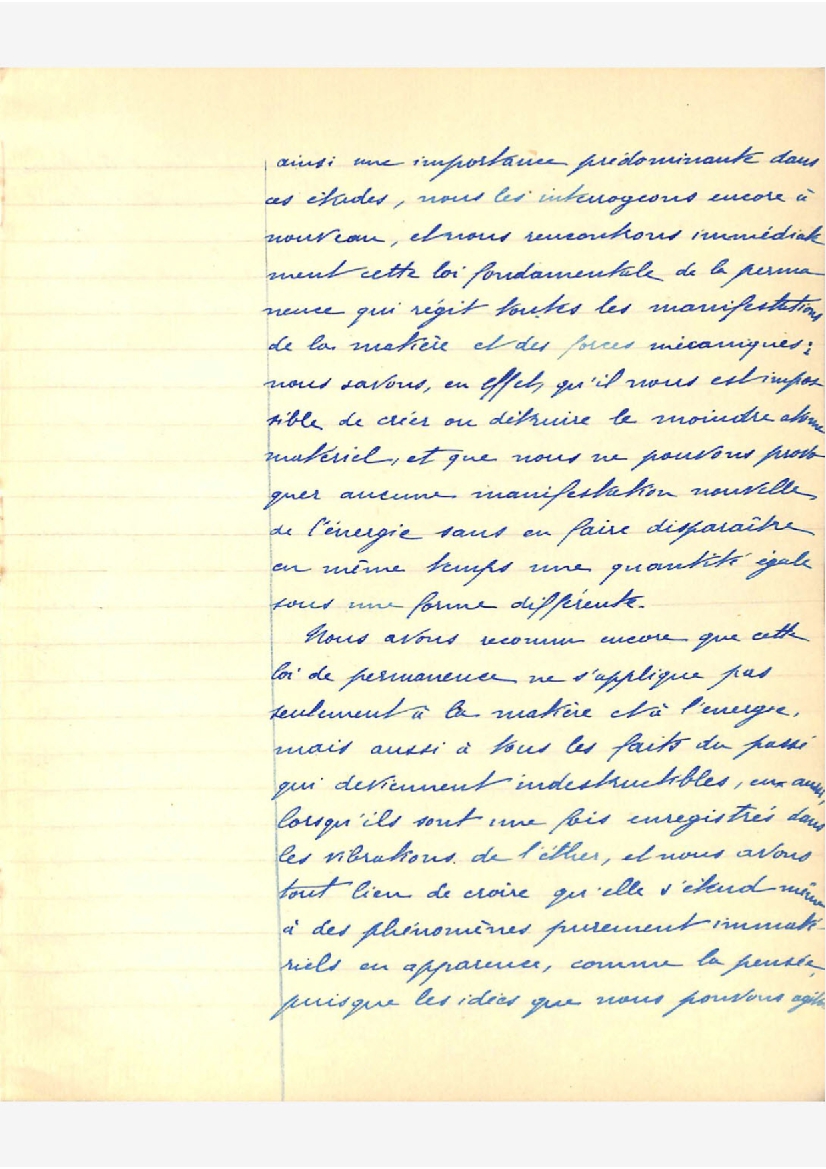 ainsi une importance prédominante dans
ces études, nous les interrogeons encore à
nouveau, et nous rencontrons immédiate
ment cette loi fondamentale de la perma
nence qui régit toutes les manifestations
de la matière et des forces mécaniques;
nous savons, en effet, qu'il nous est impos
sible de créer ou détruire le moindre atome
matériel, et que nous ne pouvons provo
quer aucune manifestation nouvelle
de l'énergie sans en faire disparaître
en même temps une quantité égale
sous une forme différente.
Nous avons reconnu encore que cette
loi de permanence ne s'applique pas
seulement à la matière et à l'énergie,
mais aussi à tous les faits du passé
qui deviennent indestructibles, eux aussi,
lorsqu'ils sont une fois enregistrés dans
les vibrations de l'éther, et nous avons
tout lieu de croire qu'elle s'étend même
à des phénomènes purement immaté
riels en apparence, comme la pensée,
puisque les idées que nous pouvons agiter